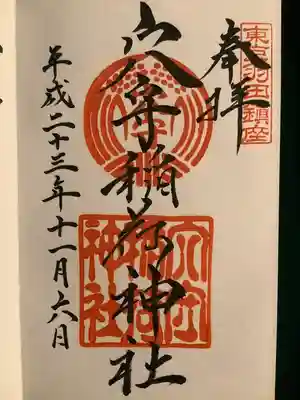 東京羽田鎮座
奉拝
穴守稲荷神社
穴守稲荷神社
平成二十三年十一月六日